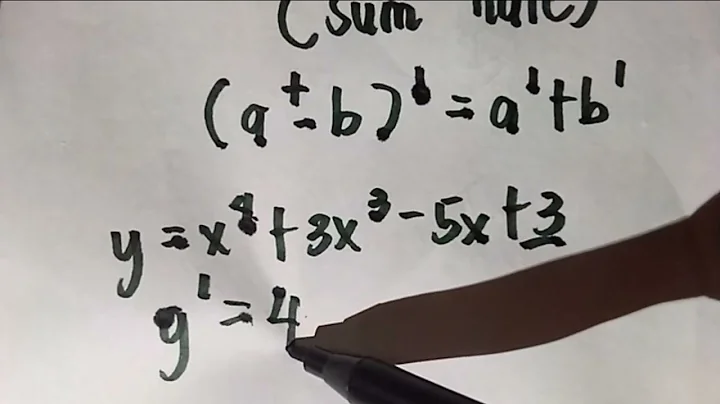 (sum rule)
(a ± b)' = a' + b'
y = x⁴ + 3x³ - 5x + 3
y' = 4